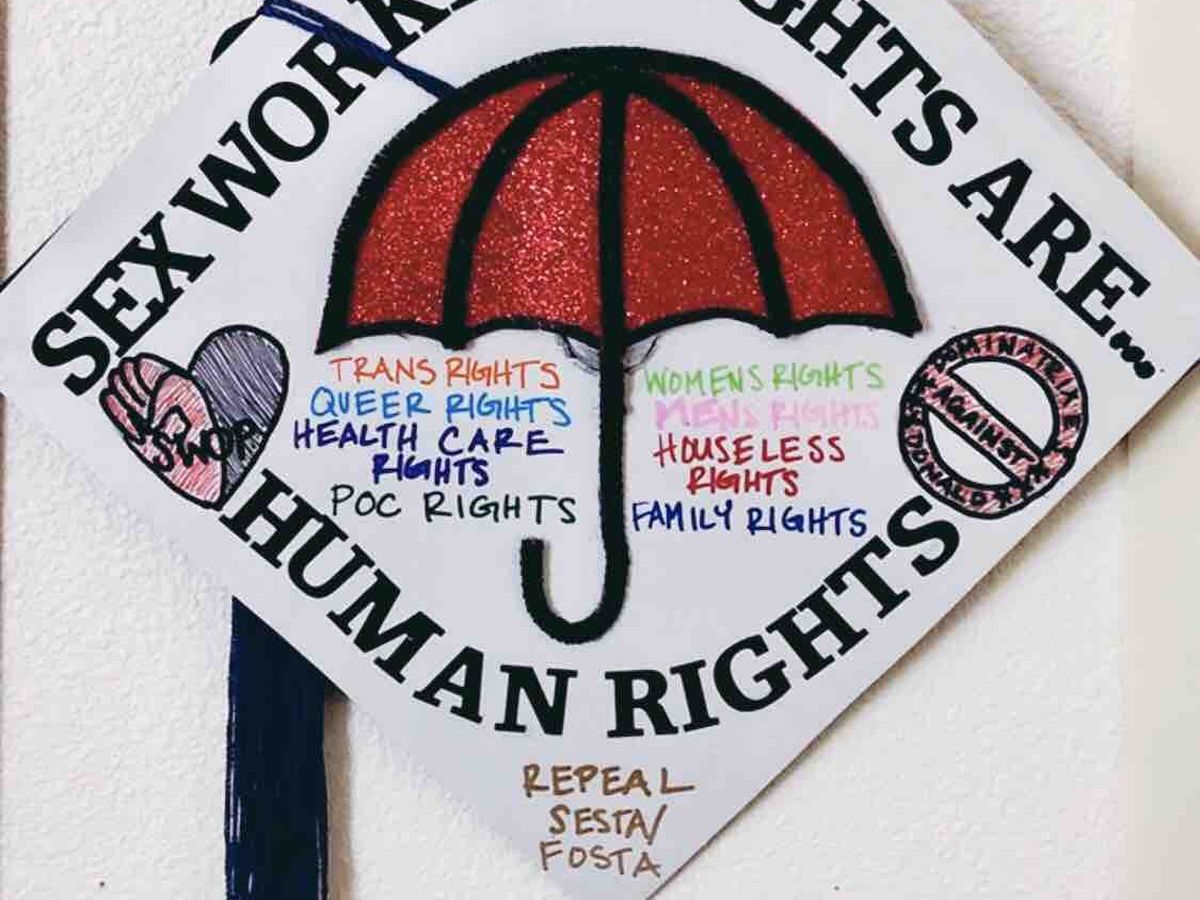 SEX WORK
GHTS ARE...
TRANS RIGHTS
QUEER RIGHTS
HEALTH CARE
RIGHTS
POC RIGHTS
WOMENS RIGHTS
MENS RIGHTS
HOUSELESS
RIGHTS
FAMILY RIGHTS
SWOP
DOMINATRIXES
AGAINST
DONALD
HUMAN RIGHTS
REPEAL
SESTA/
FOSTA